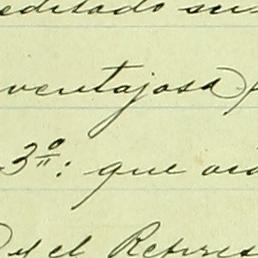 editado su
ventajosa
3º: que
y el Repres